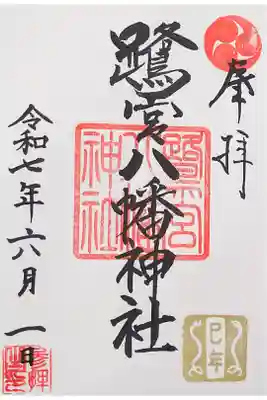 奉拝
鷺宮八幡神社
鷺宮八幡神社
巳年
令和七年六月一日